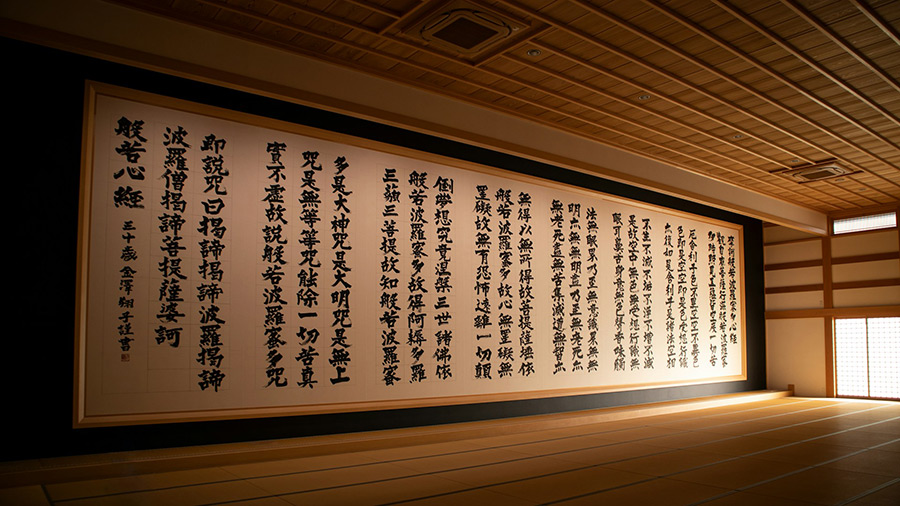 摩訶般若波羅蜜多心経
観自在菩薩行深般若波羅蜜
多時照見五蘊皆空度一切苦
厄舎利子色不異空空不異色
色即是空空即是色受想行識
亦復如是舎利子是諸法空相
不生不滅不垢不浄不増不減
是故空中無色無受想行識無
眼耳鼻舌身意無色声香味触
法無眼界乃至無意識界無無
明亦無無明尽乃至無老死亦
無老死尽無苦集滅道無智亦
無得以無所得故菩提薩埵依
般若波羅蜜多故心無罣礙無
罣礙故無有恐怖遠離一切顛
倒夢想究竟涅槃三世諸佛依
般若波羅蜜多故得阿耨多羅
三藐三菩提故知般若波羅蜜
多是大神咒是大明咒是無上
咒是無等等咒能除一切苦真
實不虚故説般若波羅蜜多咒
即説咒曰掲諦掲諦波羅掲諦
波羅僧掲諦菩提薩婆訶
般若心経
三十歳 金澤翔子謹書